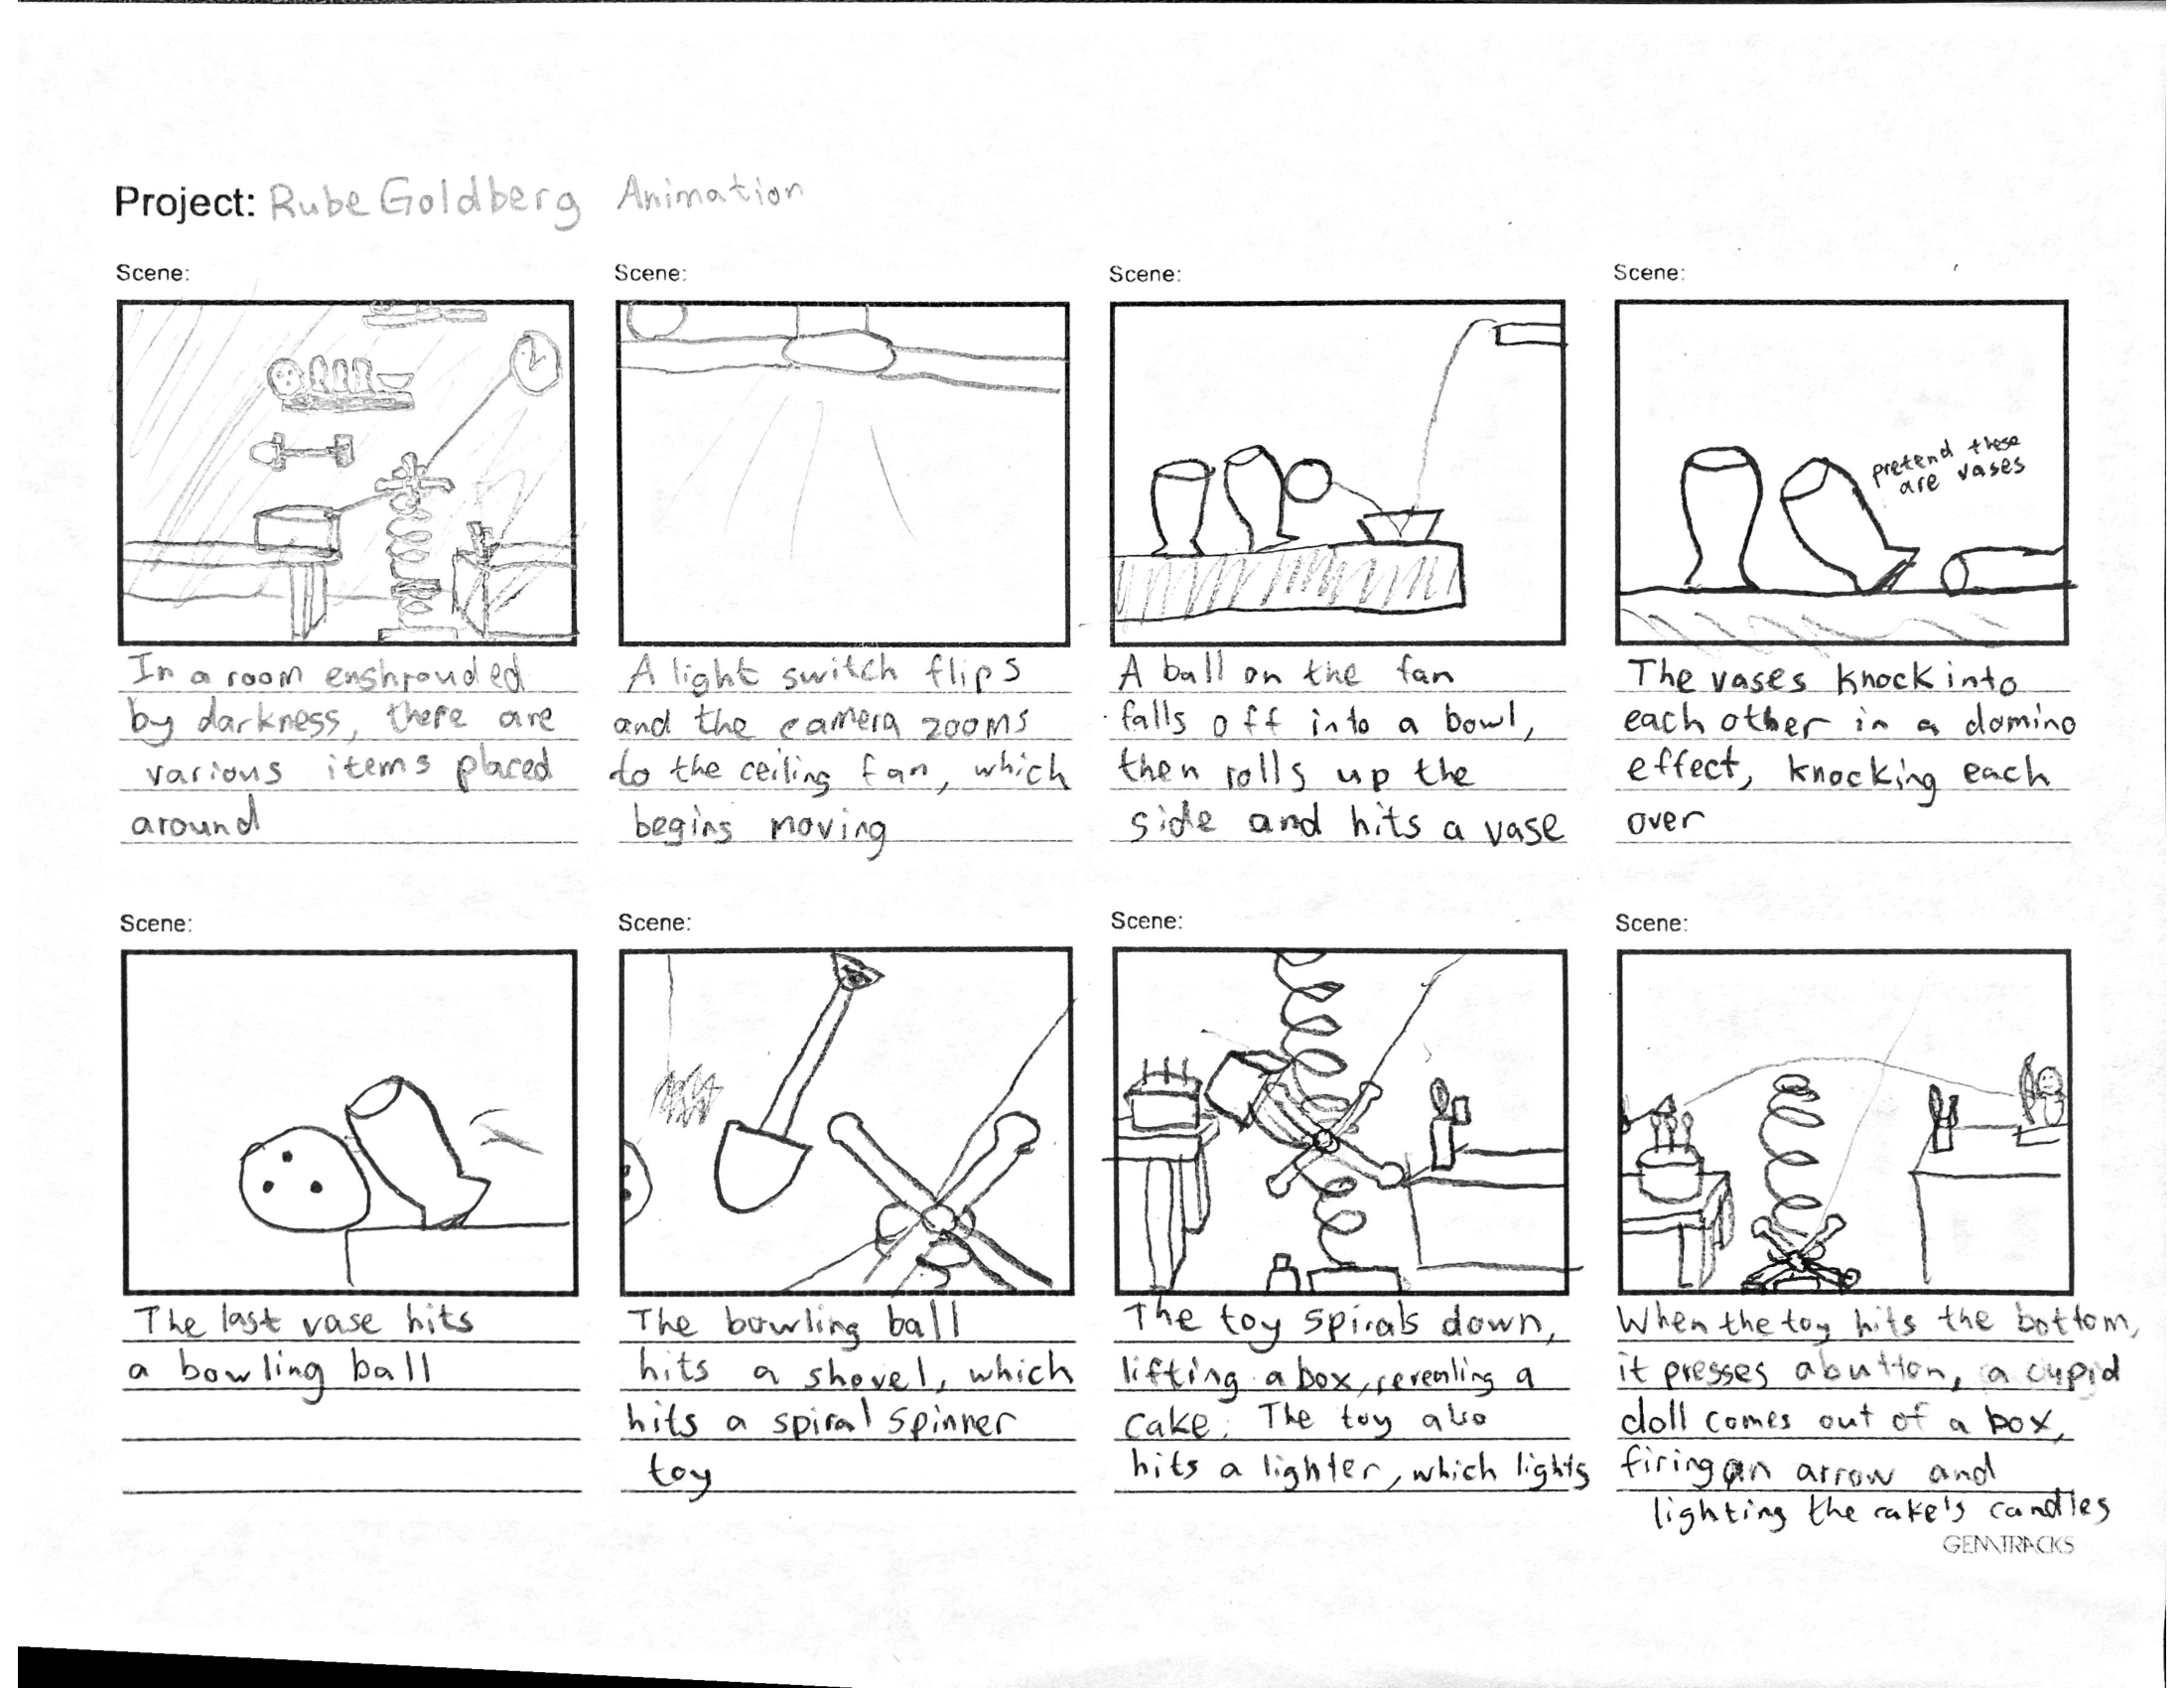 Project: Rube Goldberg Animation
Scene:
In a room enshrouded
by darkness, there are
various items placed
around
Scene:
A light switch flips
and the camera zooms
to the ceiling fan, which
begins moving
Scene:
A ball on the fan
falls off into a bowl,
then rolls up the
side and hits a vase
Scene:
pretend these
are vases
The vases knock into
each other in a domino
effect, knocking each
over
Scene:
The last vase hits
a bowling ball
Scene:
The bowling ball
hits a shovel, which
hits a spiral spinner
toy
Scene:
The toy spirals down,
lifting a box, revealing a
cake. The toy also
hits a lighter, which lights
Scene:
When the toy hits the bottom,
it presses a button, a cupid
doll comes out of a box,
firing an arrow and
lighting the cake's candles
GEMTRACKS